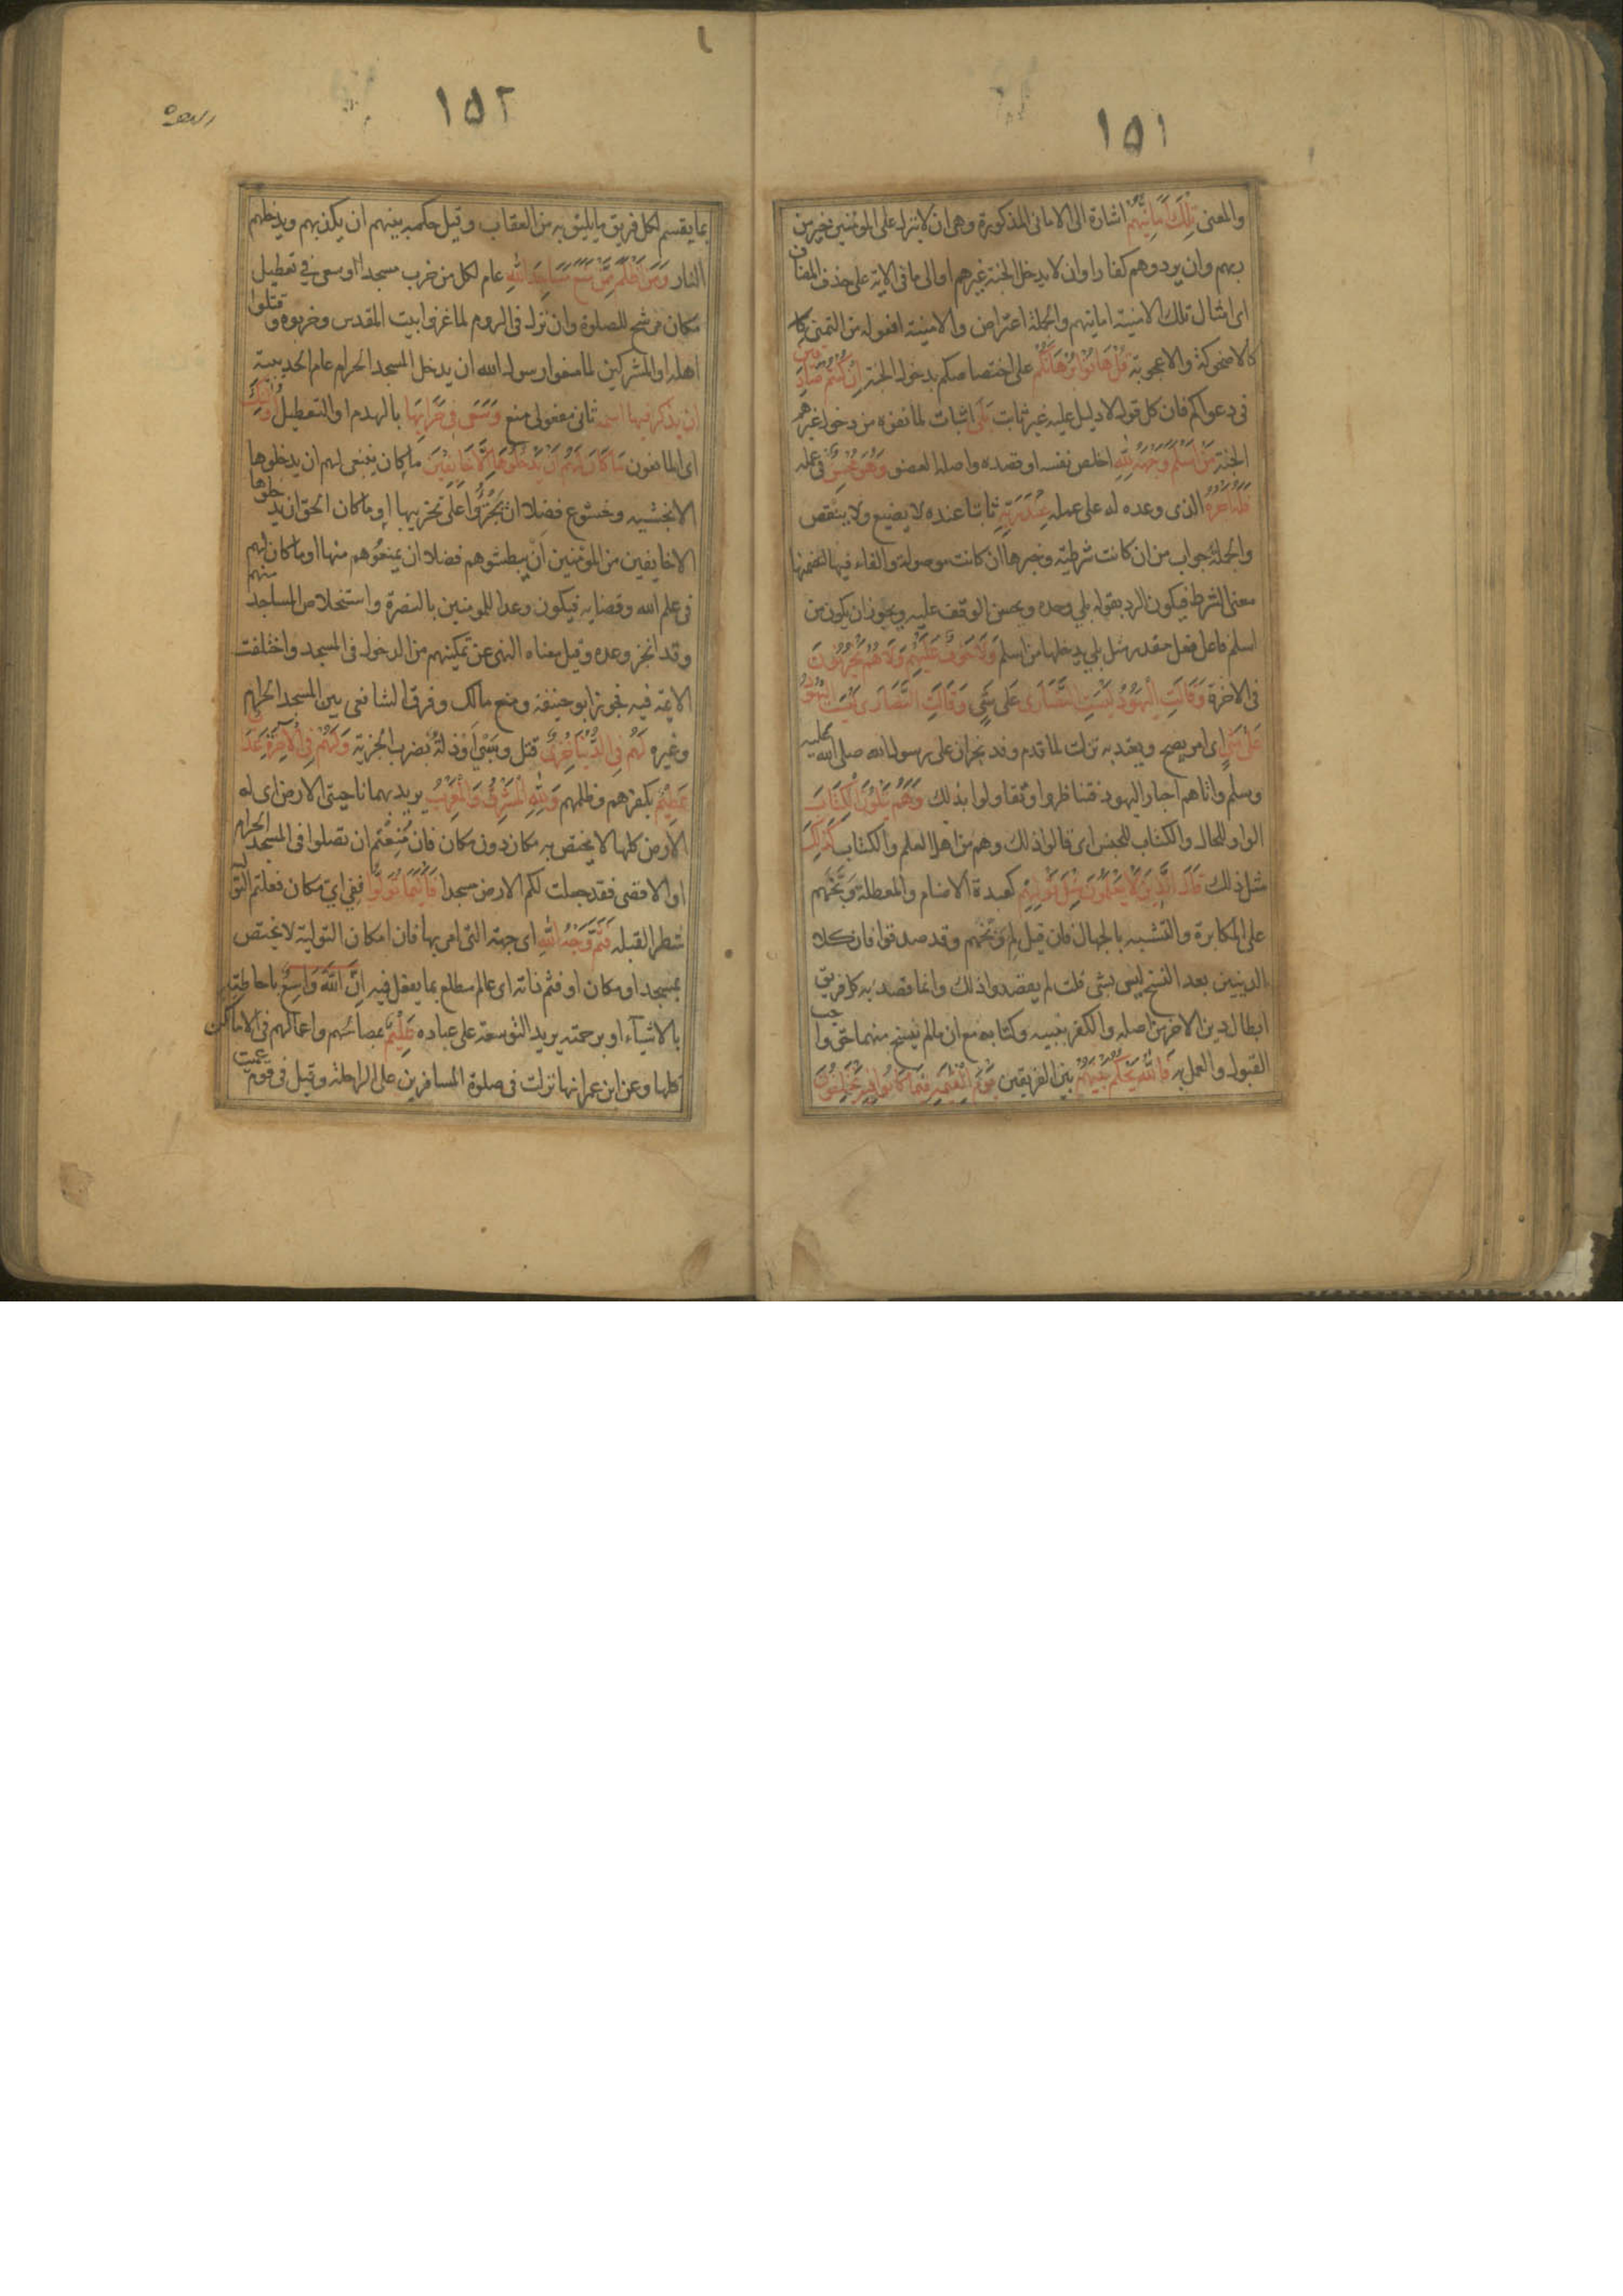 ١٥١
والمعنى تِلْكَ أَمَانِيُّهُمْ اشارة الى الامانى المذكورة وهى ان لا ينزل على المؤمنين خير من
ربهم وان يردوهم كفارا وان لا يدخل الجنة غيرهم او الى ما فى الاية على حذف المضاف
اى امثال تلك الامنية امانيهم والجملة اعتراض والامنية افعولة من التمنى كا
كالاضحوكة والاعجوبة قُلْ هَاتُوا بُرْهَانَكُمْ على اختصاصكم بدخول الجنة اِنْ كُنْتُمْ صَادِقين
فى دعواكم فان كل قول لا دليل عليه غير ثابت بَلَى اثبات لما نفوه من دخول غيرهم
الجنة مَنْ اَسْلَمَ وَجْهَهُ لِلّٰهِ اخلص نفسه او قصده واصله العضو وَهُوَ مُحْسِنٌ فى عمله
فَلَهُ اَجْرُهُ الذى وعده له على عمله عِنْدَ رَبِّهِ ثابتا عنده لا يضيع ولا ينقص
والجملة جواب من ان كانت شرطية وخبرها ان كانت موصولة والفاء فيها لتضمنها
معنى الشرط فيكون الرد بقوله بلى وحده ويحسن الوقف عليه ويجوز ان يكون من
اسلم فاعل فعل مقدر مثل بلى يدخلها من اسلم وَلَا خَوْفٌ عَلَيْهِمْ وَلَا هُمْ يَحْزَنُونَ
فى الاخرة وَقَالَتِ الْيَهُودُ لَيْسَتِ النَّصَارَى عَلَى شَيْءٍ وَقَالَتِ النَّصَارَى لَيْسَتِ الْيَهُودُ
عَلَى شَيْءٍ اى امر يصح ويعتد به نزلت لما قدم وفد نجران على رسول الله صلى الله عليه
وسلم واتاهم احبار اليهود فتناظروا وتقاولوا بذلك وَهُمْ يَتْلُونَ الْكِتَابَ
الواو للحال والكتاب للجنس اى قالوا ذلك وهم من اهل العلم والكتاب كَذٰلِكَ
مثل ذلك قَالَ الَّذِينَ لَا يَعْلَمُونَ مِثْلَ قَوْلِهِمْ كعبدة الاصنام والمعطلة وَبَّخَهم
على المكابرة والتشبه بالجهال فان قيل لم وَبَّخهم وقد صدقوا فان كلا
الدينين بعد النسخ ليس بشئ قلت لم يقصدوا ذلك وانما قصد به كل فريق
ابطال دين الاخر من اصله والكفر بنبيه وكتابه مع ان مالم ينسخ منهما حق واجب
القبول والعمل به فَاللّٰهُ يَحْكُمُ بَيْنَهُمْ بين الفريقين يَوْمَ الْقِيٰمَةِ فِيمَا كَانُوا فِيهِ يَخْتَلِفُونَ
١٥٢
بما يقسم لكل فريق ما يليق به من العقاب وقيل حكمه بينهم ان يكذبهم ويدخلهم
النار وَمَنْ اَظْلَمُ مِمَّنْ مَنَعَ مَسَاجِدَ اللّٰهِ عام لكل من خرب مسجدا او سعى فى تعطيل
مكان مرشح للصلوة وان نزل فى الروم لما غزوا بيت المقدس وخربوه وقتلوا
اهله او المشركين لما منعوا رسول الله ان يدخل المسجد الحرام عام الحديبية
ان يذكر فيها اسمه ثانى مفعولى منع وَسَعَى فِي خَرَابِهَا بالهدم او التعطيل اُولٰئِكَ
اى المانعون مَا كَانَ لَهُمْ اَنْ يَدْخُلُوهَا اِلَّا خَائِفِينَ ما كان ينبغى لهم ان يدخلوها
الا بخشية وخشوع فضلا ان يَجْتَرِؤُا على تخريبها او ما كان الحق ان يدخلوها
الا خايفين من المؤمنين ان يبطشوهم فضلا ان يمنعوهم منها او ما كان لهم
فى علم الله وقضايه فيكون وعدا للمومنين بالنصرة واستخلاص المساجد منهم
وقد انجز وعده وقيل معناه النهى عن تمكينهم من الدخول فى المسجد واختلفت
الايمة فيه فجوز ابو حنيفة ومنع مالك وفرق الشافعى بين المسجد الحرام
وغيره لَهُمْ فِي الدُّنْيَا خِزْيٌ قتل وسَبْيٌ او ذلة بضرب الجزية وَلَهُمْ فِي الْآخِرَةِ عَذَابٌ
عَظِيمٌ بكفرهم وظلمهم وَلِلّٰهِ الْمَشْرِقُ وَالْمَغْرِبُ يريد بهما ناحيتى الارض اى له
الارض كلها لا يختص به مكان دون مكان فان مُنِعْتُم ان تصلوا فى المسجد الحرام
او الاقصى فقد جعلت لكم الارض مسجدا فَاَيْنَمَا تُوَلُّوا ففي اي مكان فعلتم التو
شطر القبلة فَثَمَّ وَجْهُ اللّٰهِ اى جهته التى امر بها فان امكان التولية لا يختص
بمسجد او مكان او فثم ذاته اى عالم مطلع بما يفعل فيه اِنَّ اللّٰهَ وَاسِعٌ باحاطته
بالاشيآء او برحمته يريد التوسعة على عباده عَلِيمٌ بمصالحهم واعمالهم فى الاماكن
كلها وعن ابن عمر انها نزلت فى صلوة المسافرين على الراحلة وقيل فى قوم عميت